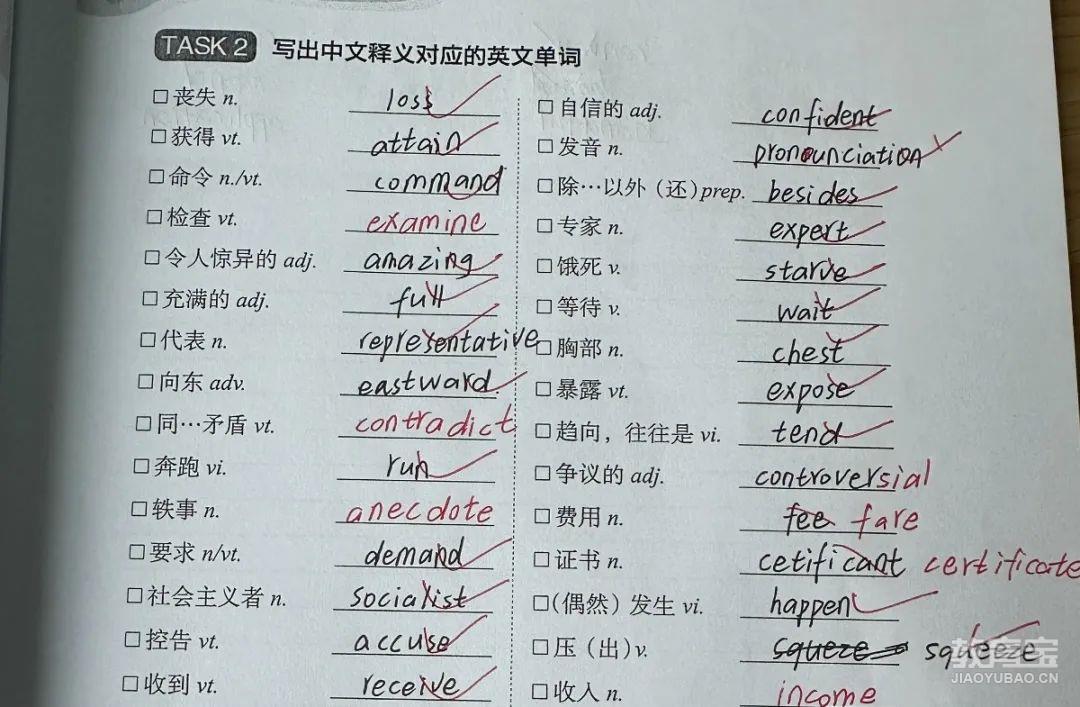 TASK 2 写出中文释义对应的英文单词
□丧失 n. loss
□获得 vt. attain
□命令 n./vt. command
□检查 vt. examine
□令人惊异的 adj. amazing
□充满的 adj. full
□代表 n. representative
□向东 adv. eastward
□同…矛盾 vt. contradict
□奔跑 vi. run
□轶事 n. anecdote
□要求 n/vt. demand
□社会主义者 n. socialist
□控告 vt. accuse
□收到 vt. receive
□自信的 adj. confident
□发音 n. pronounciation
□除…以外（还）prep. besides
□专家 n. expert
□饿死 v. starve
□等待 v. wait
□胸部 n. chest
□暴露 vt. expose
□趋向，往往是 vi. tend
□争议的 adj. controversial
□费用 n. fee fare
□证书 n. cetificant certificate
□(偶然）发生 vi. happen
□压（出）v. squeze squeeze
□收入 n. income
教育宝
JIAOYUBAO.CN